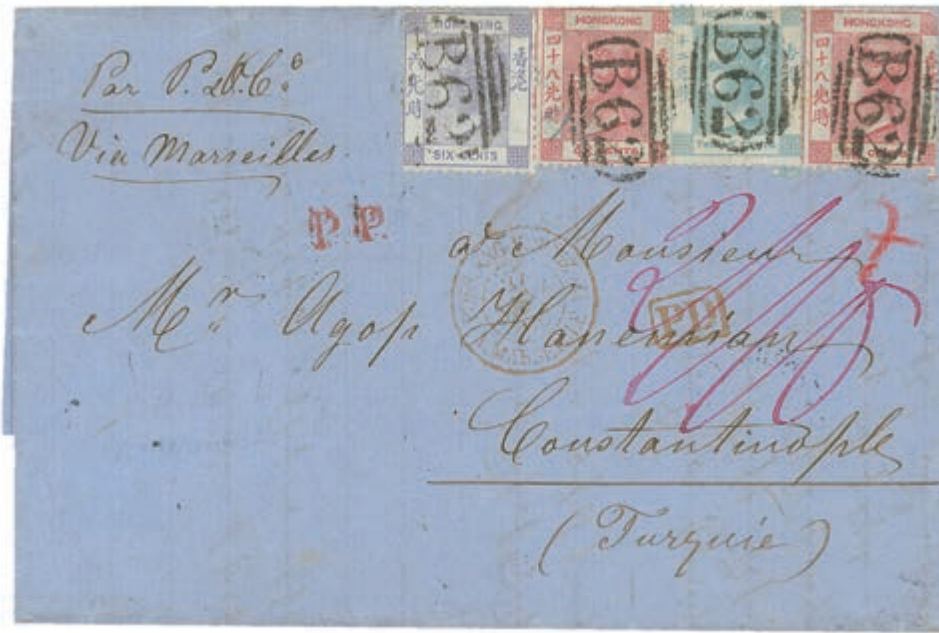 Par P. & O. Cº
Via Marseilles.
HONGKONG
香港
SIX CENTS
B62
HONGKONG
香港
四十八先時
CENTS
B62
B62
HONGKONG
香港
四十八先時
CENTS
B62
P.P.
a Monsieur
Mr Agop Hanemian
PD
Constantinople
(Turquie)